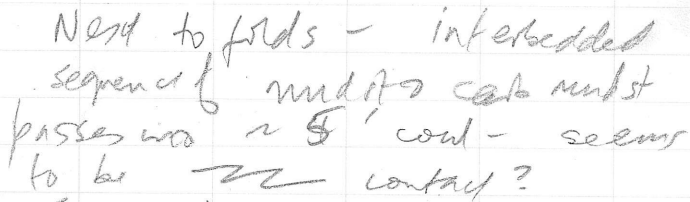 Next to folds - interbedded
sequence of mudst > carb mudst
passes into ~ 5' coal - seems
to be contact?